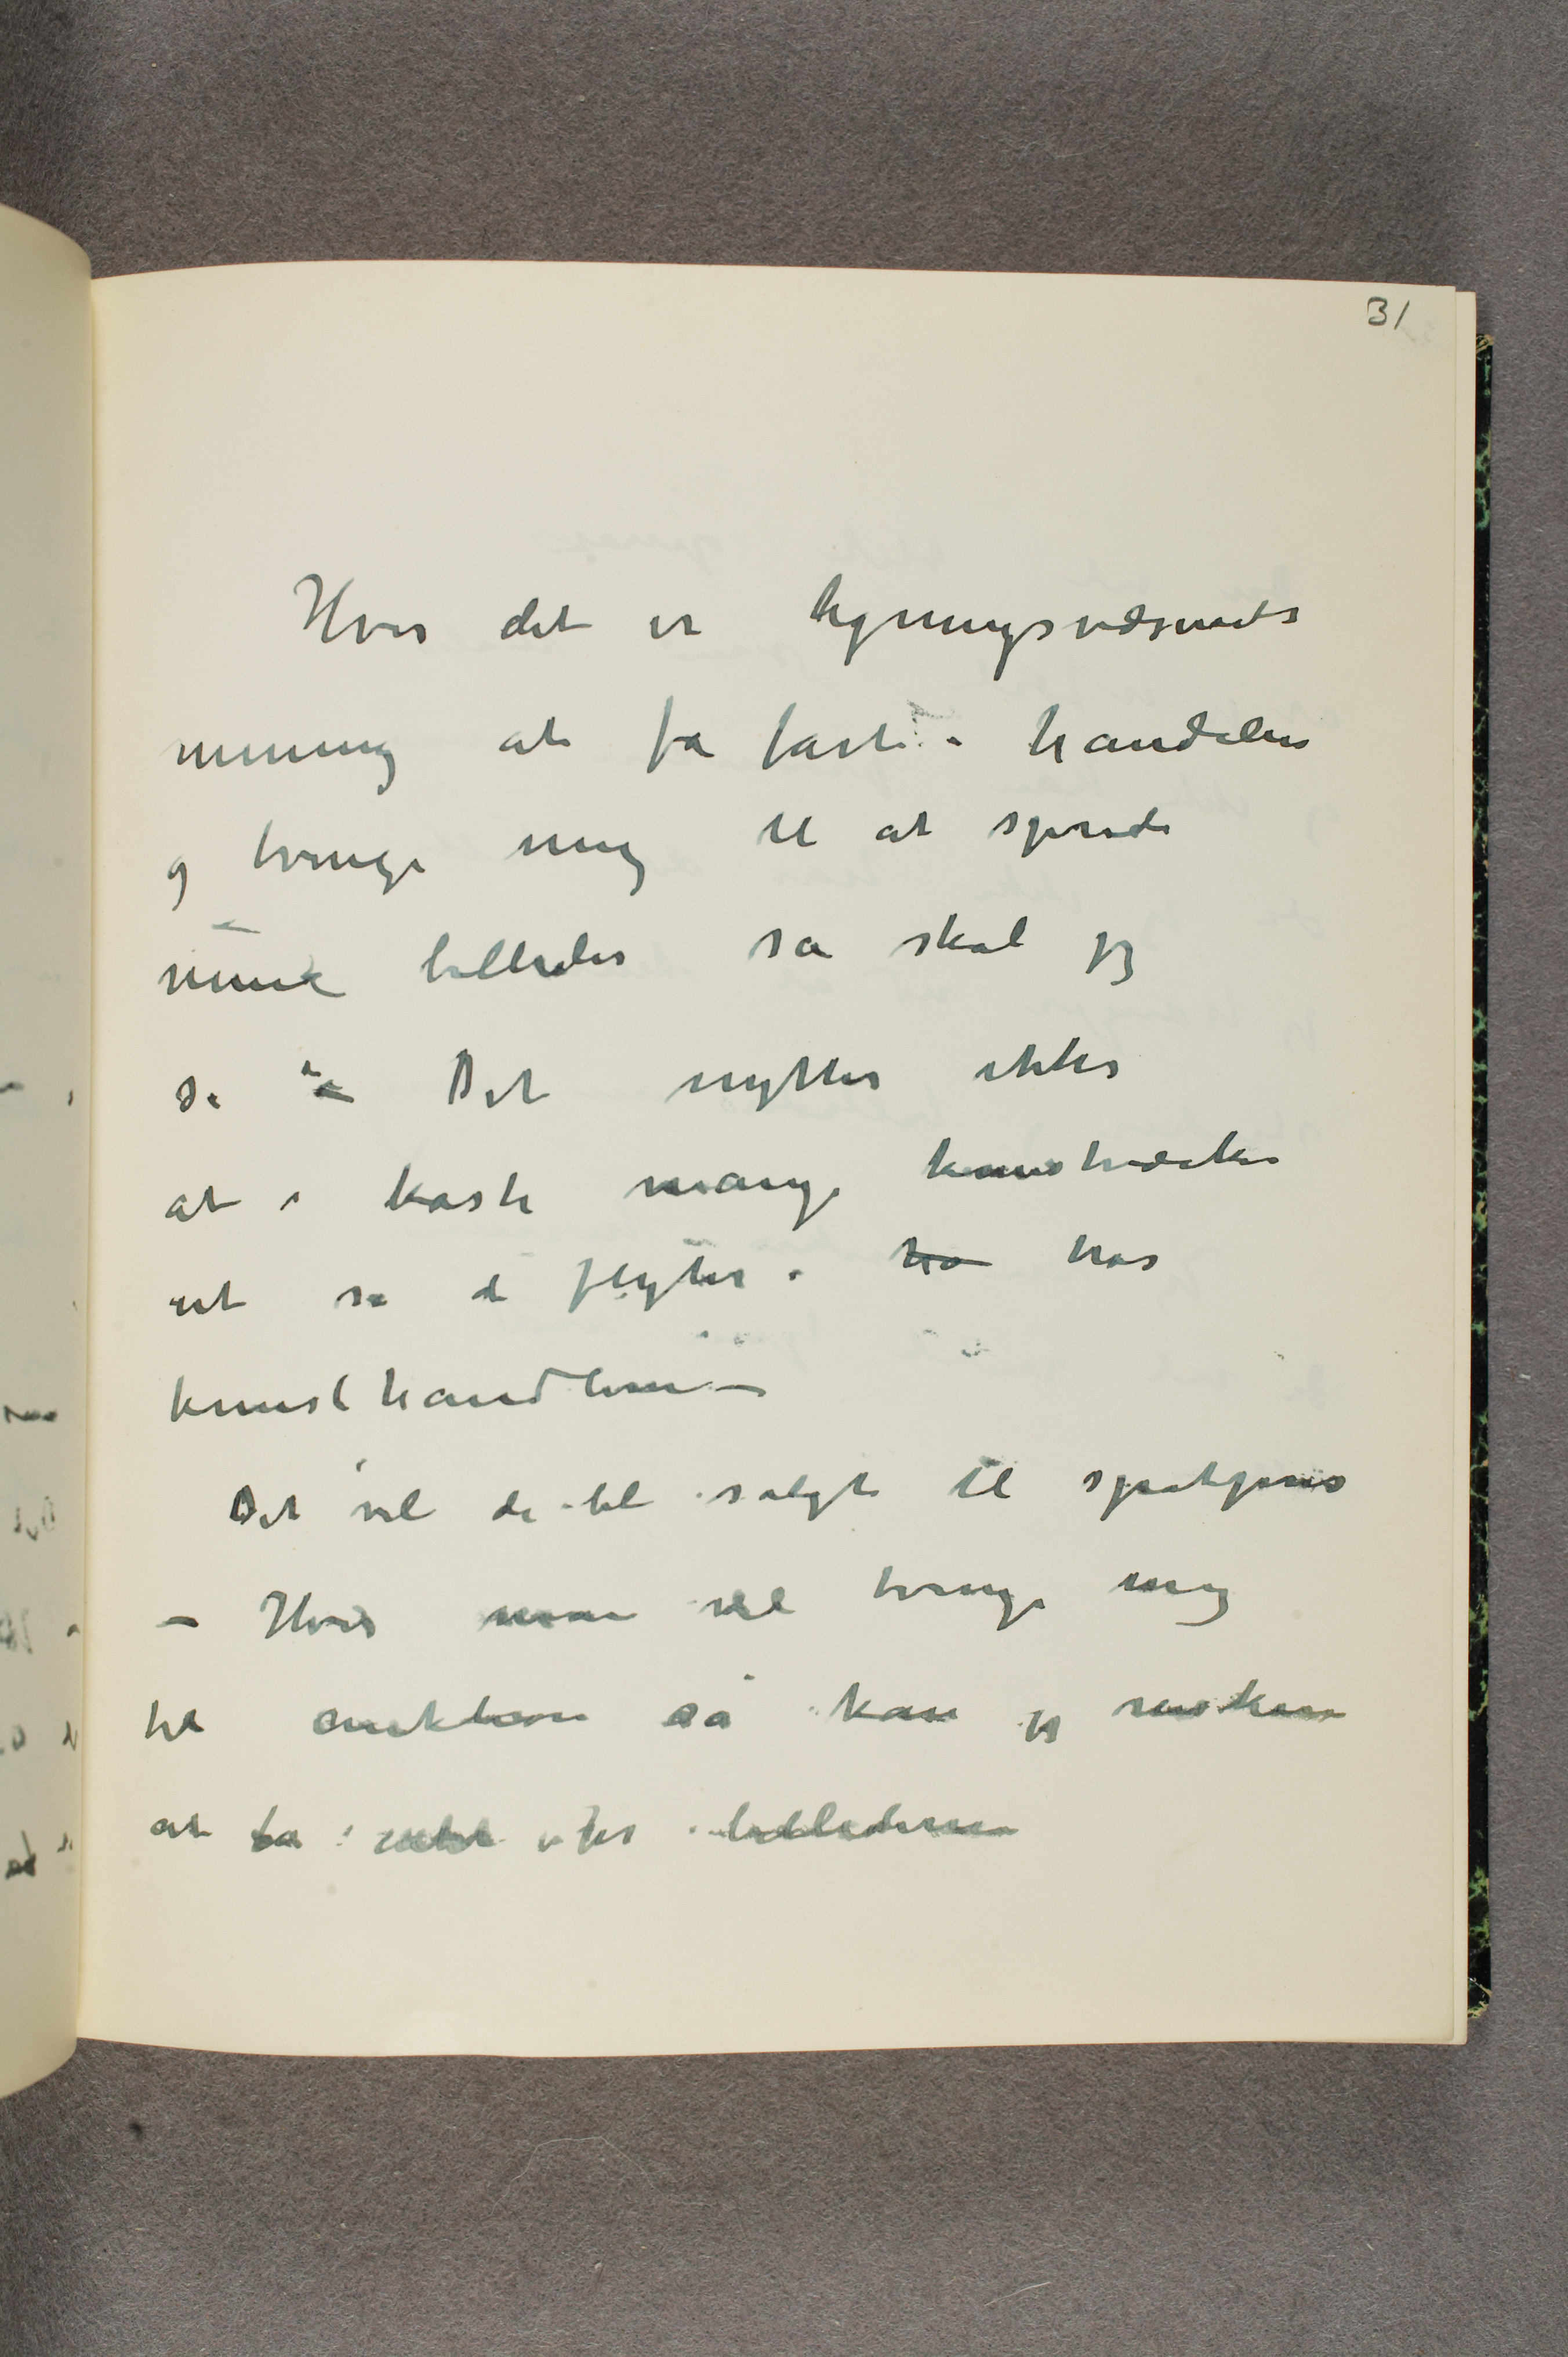 31
Hvis det er ligningsvæsnets
mening at få fart i handelen
og tvinge mig til at sprede
mine billeder så skal jeg
si – Det nytter ikke
at kaste mange kunstværker
ut så de flyter ha hos
kunsthandlerne –
Det vil de bli solgt til spotpris
– Hvis man vil tvinge mig
til auktion så kan jeg
at ta billederne